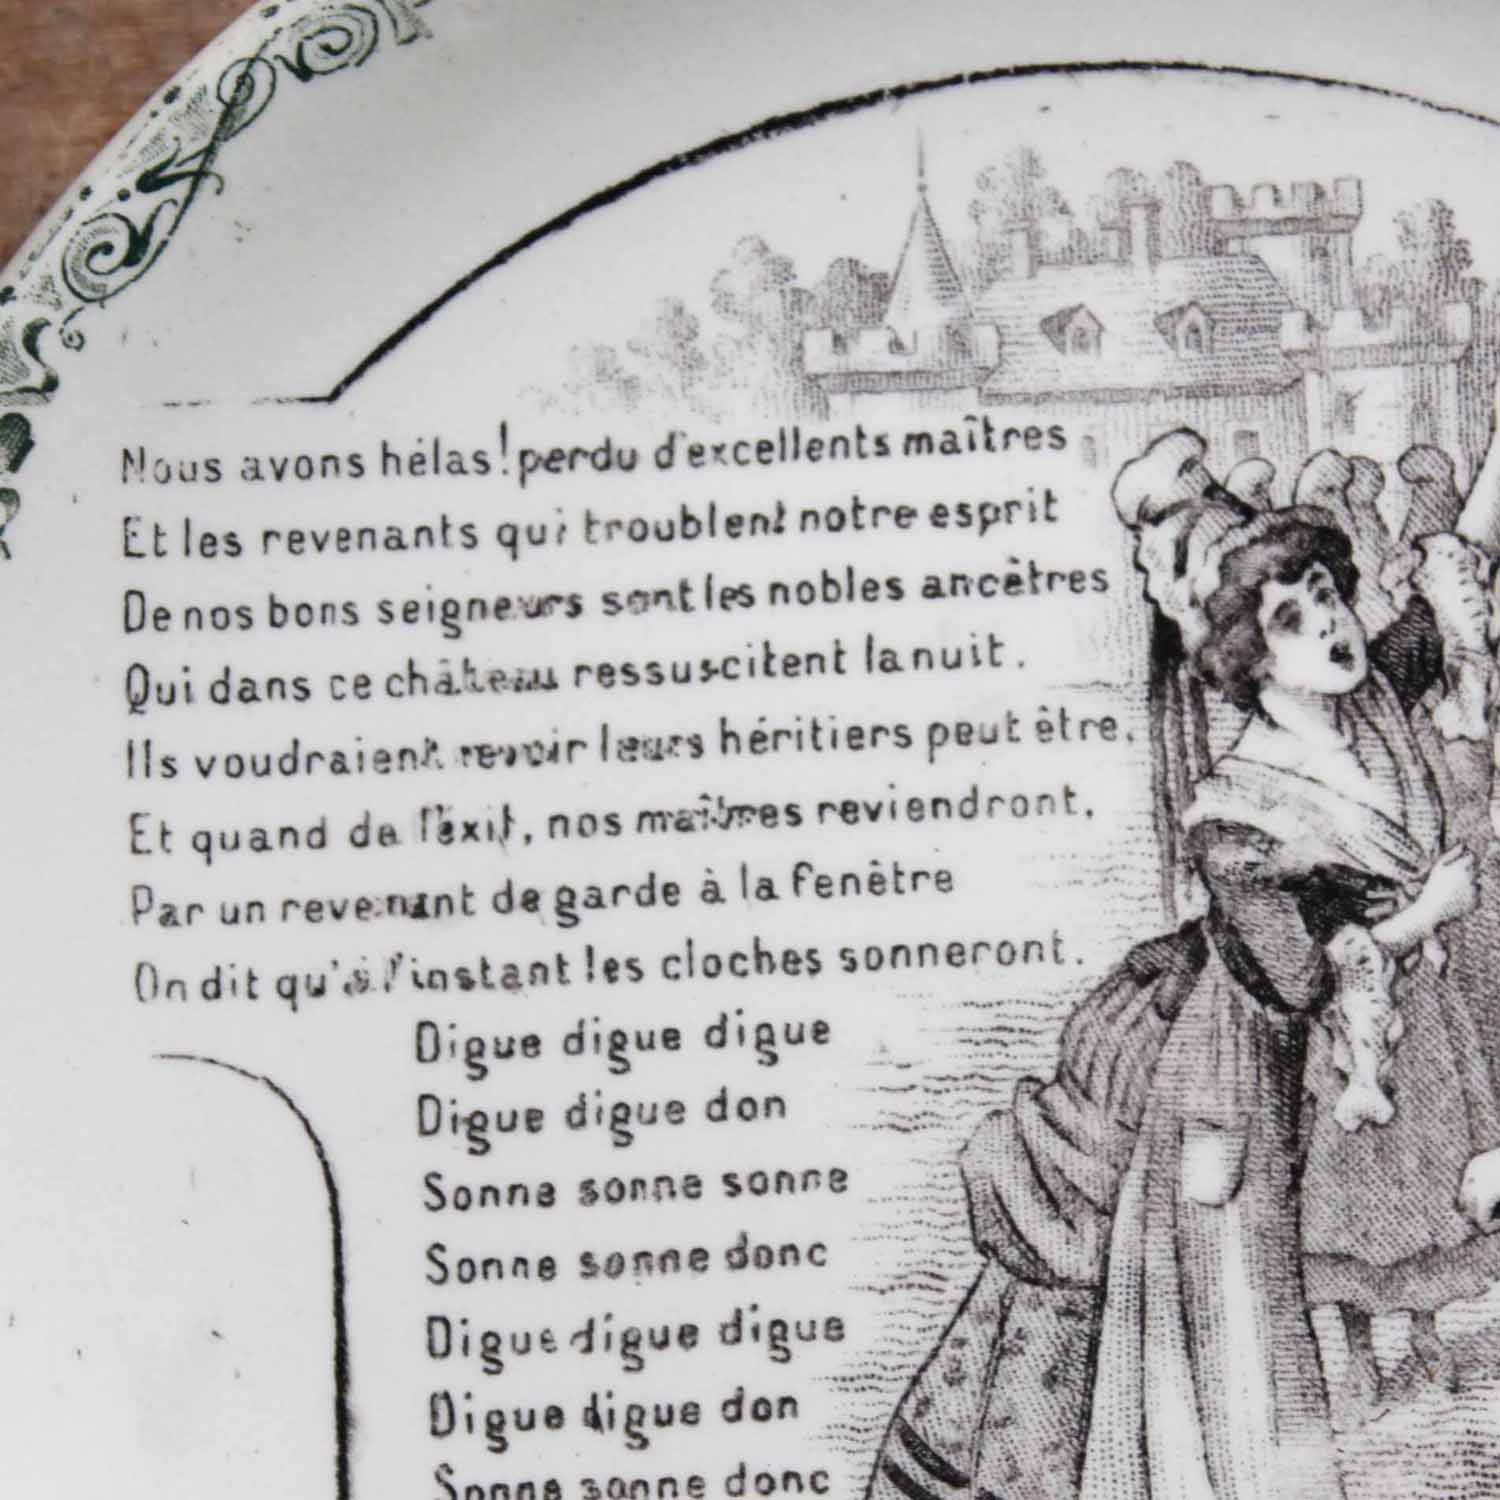 Nous avons hélas! perdu d'excellents maîtres
Et les revenants qui troublent notre esprit
De nos bons seigneurs sont les nobles ancêtres
Qui dans ce château ressuscitent la nuit.
Ils voudraient revoir leurs héritiers peut être.
Et quand de l'exil, nos maîtres reviendront.
Par un revenant de garde à la fenêtre
On dit qu'à l'instant les cloches sonneront.
Digue digue digue
Digue digue don
Sonne sonne sonne
Sonne sonne donc
Digue digue digue
Digue digue don
Sonne sonne donc